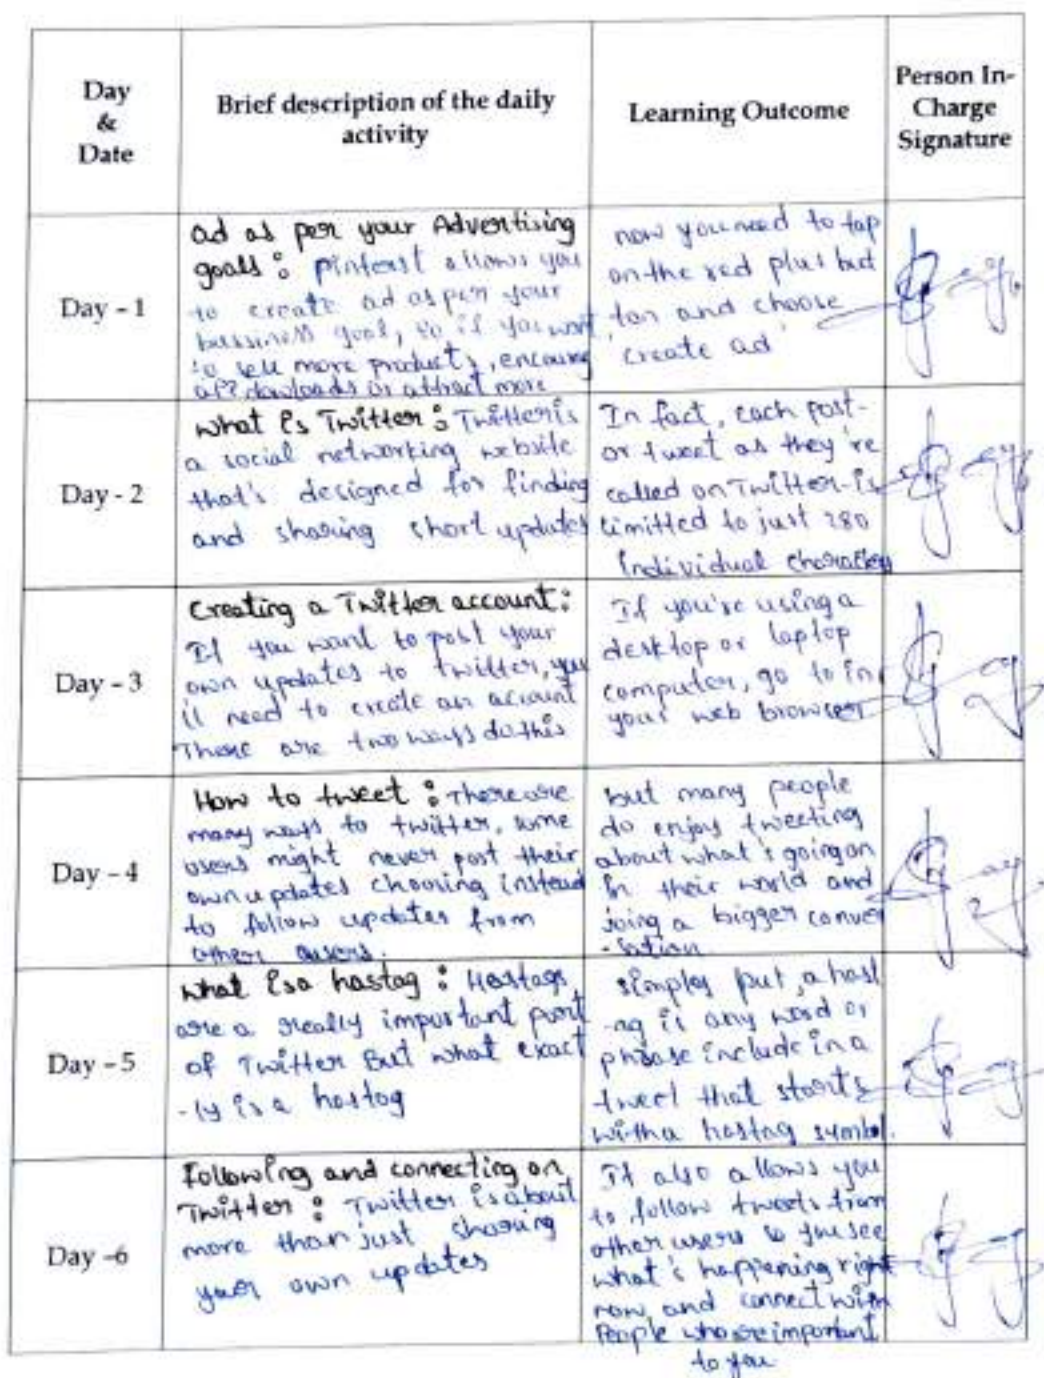 Day
&
Date
Brief description of the daily
activity
Learning Outcome
Person In-
Charge
Signature
Day - 1
ad as per your Advertising
goals : pinterest allows you
to create ad as per your
bussiness goal, so if you want
to sell more products, encourag
app dowloads or attract more
now you need to tap
on the red plus but
ton and choose
'create ad'
Day - 2
what is Twitter : Twitter is
a social networking website
that's designed for finding
and sharing short updates
In fact, each post-
or tweet as they're
called on Twitter-is
limitted to just 280
individual characters
Day - 3
Creating a Twitter account:
If you want to post your
own updates to twitter, you
'll need to create an account
There are two ways do this
If you're using a
desktop or laptop
computer, go to in
your web browser
Day - 4
How to tweet : There are
many ways to twitter, some
users might never post their
own updates choosing instead
to follow updates from
other users.
but many people
do enjoy tweeting
about what's going on
in their world and
joing a bigger conver
-sation
Day - 5
what is a hastag : Hastags
are a really important part
of Twitter But what exact
-ly is a hastag
simply put, a hast
-ag is any word or
phrase include in a
tweet that starts
with a hastag symbol.
Day -6
Following and connecting on
Twitter : Twitter is about
more than just sharing
your own updates
It also allows you
to follow tweets from
other users so you see
what's happening right
now, and connect with
People who are important
to you